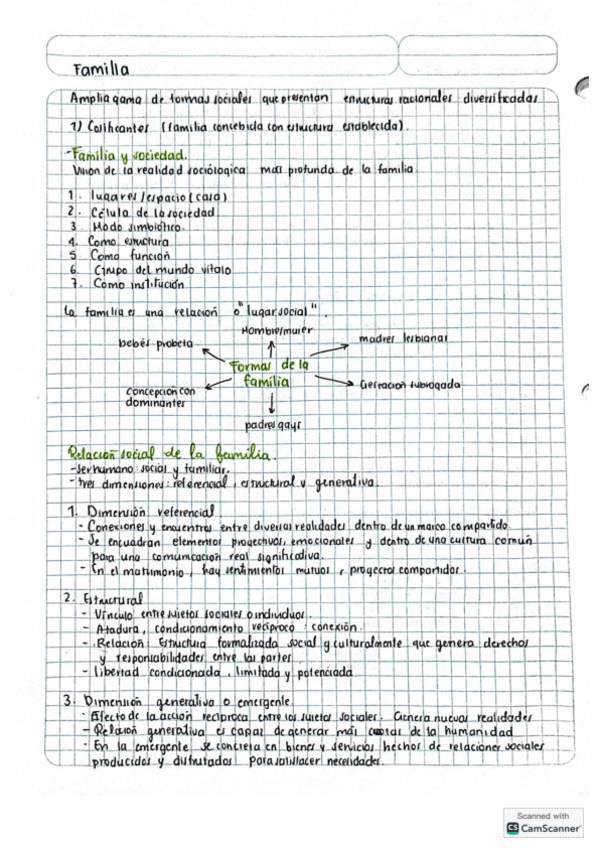 Familia
Amplia gama de formas sociales que presentan estructuras racionales diversificadas
1) Cosificantes (familia concebida con estructura establecida).
-Familia y sociedad.
Vision de la realidad sociólogica más profunda de la familia.
1. lugares/espacio (casa)
2. Célula de la sociedad
3. Modo simbiótico.
4. Como estructura
5. Como función
6. Grupo del mundo vitalo
7. Como institución
la familia es una relación o "lugar social".
Hombre/mujer
bebés probeta
madres lesbianas
Formas de la
familia
concepcion con
dominantes
Gestacion subrogada
padres gays
Relación social de la familia.
-ser humano: social y familiar.
-tres dimensiones: referencial, estructural y generativa.
1. Dimensión referencial
- Conexiones y encuentros entre diversas realidades dentro de un marco compartido.
- Se encuadran elementos proyectivos, emocionales y dentro de una cultura común
para una comunicación real significativa.
- En el matrimonio, hay sentimientos mutuos, proyectos compartidos.
2. Estructural
- Vínculo entre sujetos sociales o individuos.
- Atadura, condicionamiento recíproco: conexión.
- Relación: Estructura formalizada social y culturalmente que genera derechos
y responsabilidades entre las partes.
- libertad condicionada, limitada y potenciada
3. Dimensión generativa o emergente.
- Efecto de la acción recíproca entre los sujetos sociales. Genera nuevas realidades
- Relación generativa es capaz de generar más cuotas de la humanidad
- En la emergente se concreta en bienes y servicios hechos de relaciones sociales
producidos y disfrutados para satisfacer necesidades.
Scanned with
CS CamScanner